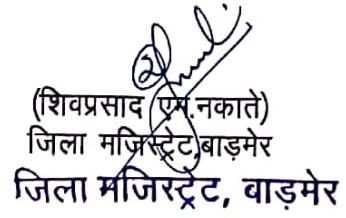 (शिवप्रसाद एम.नकाते)
जिला मजिस्ट्रेट,बाड़मेर
जिला मजिस्ट्रेट, बाड़मेर